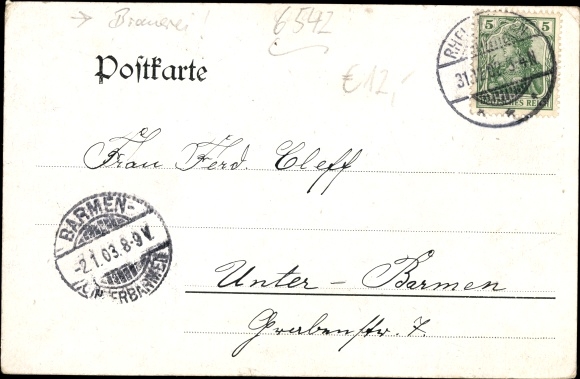 → Brauerei!
6542
€12,-
Postkarte
5 5
DEUTSCHES REICH
31.12.02
Frau Ferd. Cleff
BARMEN-
-2.1.03.8-9V.
UNTERBARMEN
Unter-Barmen
Grabenstr. 7.